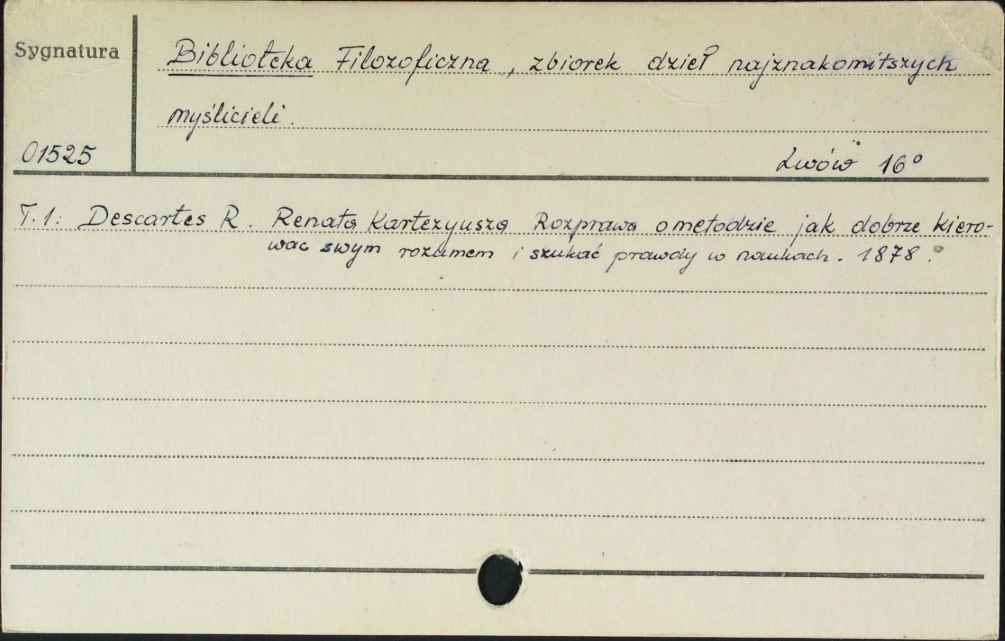 Sygnatura
Biblioteka Filozoficzna, zbiorek dzieł najznakomitszych
myślicieli.
01525
Lwów 16°
T.1: Descartes R. Renata Kartezyusza Rozprawa o metodzie jak dobrze kiero-
wac swym rozumem i szukać prawdy w naukach. 1878.